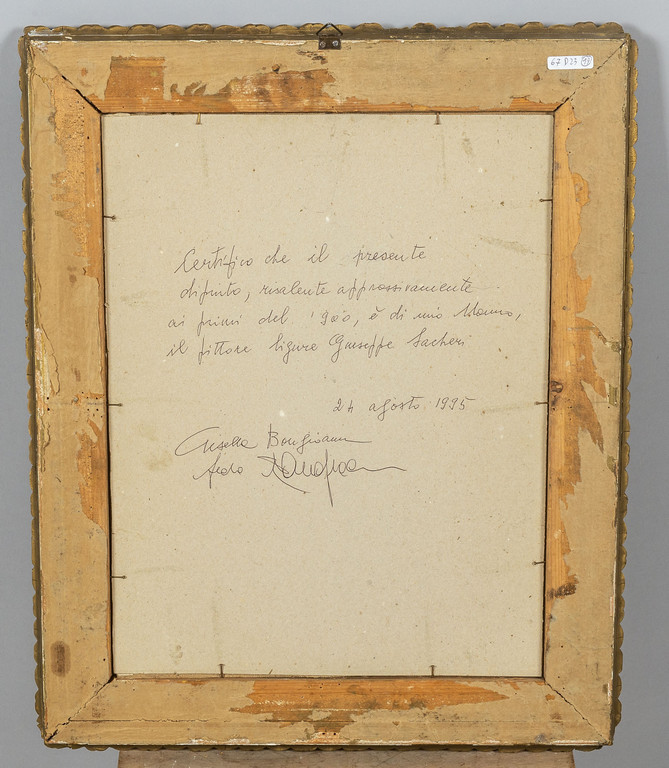 67 D33
Certifico che il presente
dipinto, risalente approssivamente
ai primi del '900, è di mio Nonno,
il pittore ligure Giuseppe Sacheri
24 agosto 1995
Bongioanni